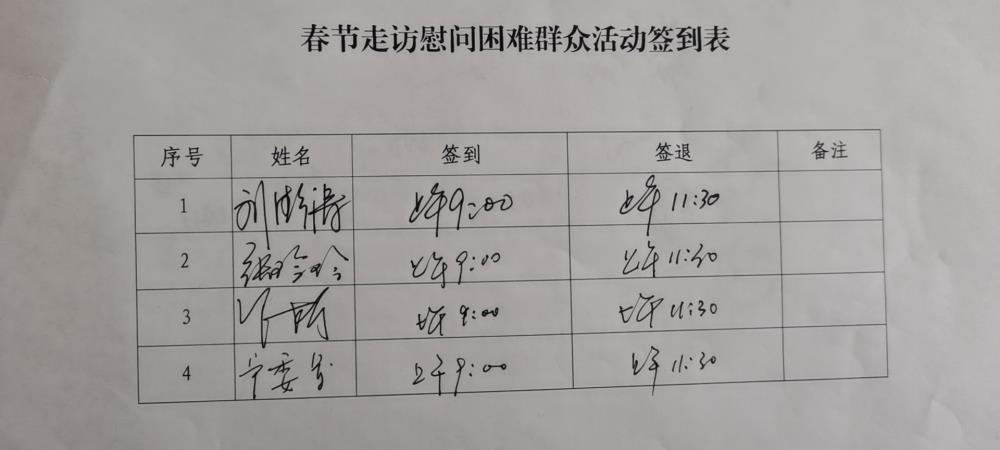 春节走访慰问困难群众活动签到表
序号 姓名 签到 签退 备注
1 上午9:00 上午11:30
2 上午9:00 上午11:30
3 上午9:00 上午11:30
4 上午9:00 上午11:30